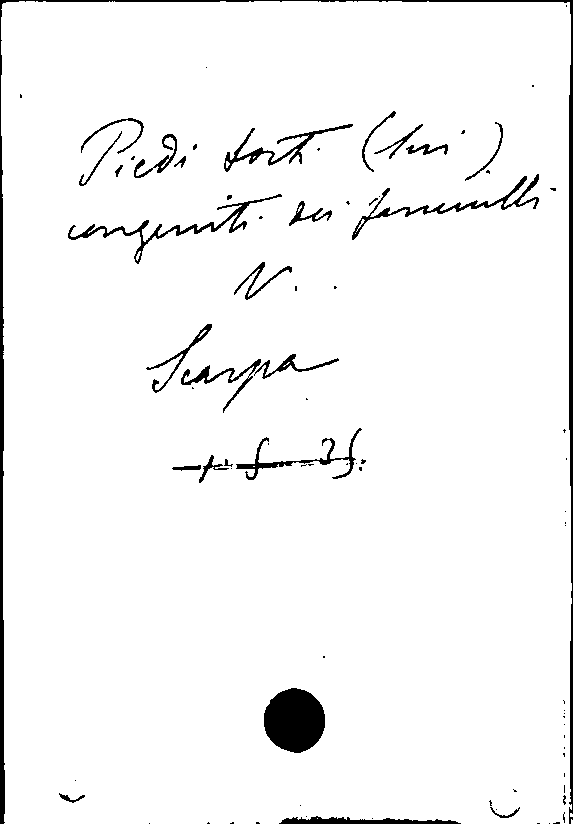 Piedi torti (sui)
congeniti dei fanciulli
V. .
Scarpa